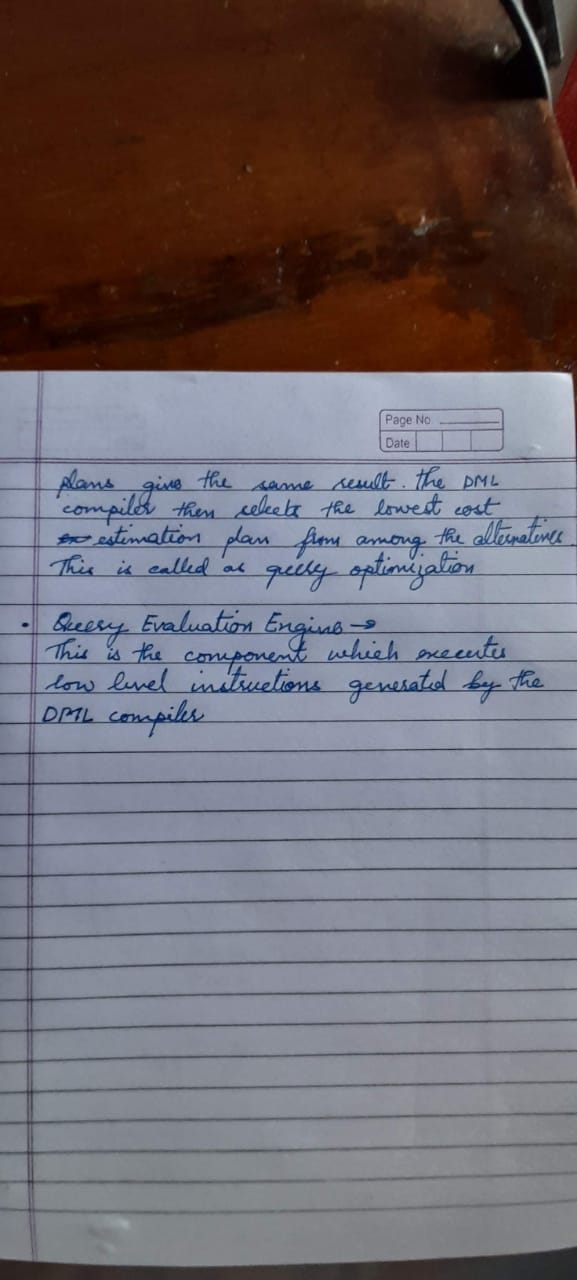 Page No
Date
plans give the same result. The DML
compiler then selects the lowest cost
estimation plan from among the alternatives.
This is called as query optimization
• Query Evaluation Engine →
This is the component which executes
low level instructions generated by the
DML compiler